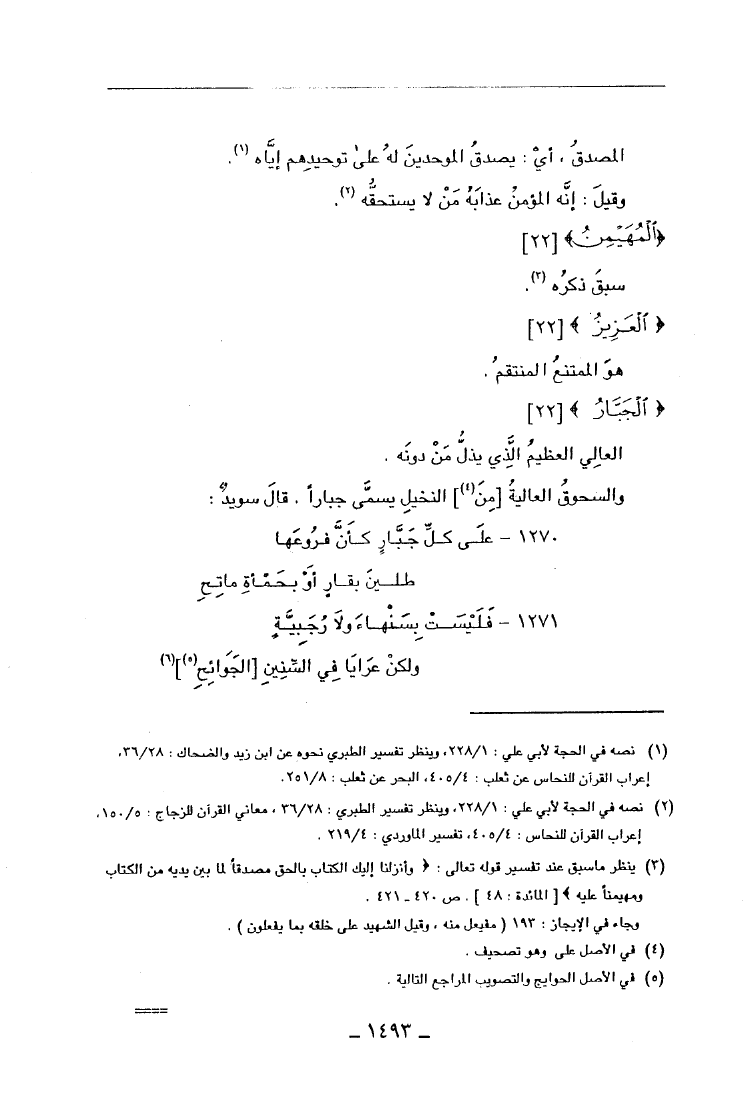 المصدقُ ، أيْ : يصدقُ الموحدينَ لهُ علىٰ توحيدِهم إيَّاه (١).
وقيلَ : إنَّه المؤمنُ عذابَهُ مَنْ لا يستحقُّه (٢).
﴿ٱلْمُهَيْمِنُ﴾ [٢٢]
سبقَ ذكرُه (٣).
﴿ ٱلْعَزِيزُ ﴾ [٢٢]
هوَ الممتنعُ المنتقمُ .
﴿ ٱلْجَبَّارُ ﴾ [٢٢]
العالِي العظيمُ الَّذِي يذلُّ مَنْ دونَه .
والسحوقُ العاليةُ [مِنَ(٤)] النخيلِ يسمَّى جباراً . قالَ سويدٌ :
١٢٧٠ – علَــى كــلِّ جَبَّـارٍ كـأنَّ فروعَهـا
طلــينَ بقــارٍ أوْ بـحَمْـأةِ ماتـحِ
١٢٧١ – فَلَيْسَــتْ بِسَنْهـاءَ ولَا رُجَبِيَّـةٍ
ولكنْ عرَايَا فِي السِّنِينِ [الجَوائحِ(٥)](٦)
(١) نصه في الحجة لأبي علي : ٢٢٨/١، وينظر تفسير الطبري نحوه عن ابن زيد والضحاك : ٣٦/٢٨،
إعراب القرآن للنحاس عن ثعلب : ٤٠٥/٤، البحر عن ثعلب : ٢٥١/٨.
(٢) نصه في الحجة لأبي علي : ٢٢٨/١، وينظر تفسير الطبري : ٣٦/٢٨ ، معاني القرآن للزجاج : ١٥٠/٥،
إعراب القرآن للنحاس : ٤٠٥/٤، تفسير الماوردي : ٢١٩/٤ .
(٣) ينظر ماسبق عند تفسير قوله تعالى : ﴿ وأنزلنا إليك الكتاب بالحق مصدقاً لما بين يديه من الكتاب
ومهيمناً عليه ﴾ [ المائدة : ٤٨ ] . ص ٤٢٠ ـ ٤٢١ .
وجاء في الإيجاز : ١٩٣ ( مفيعل منه ، وقيل الشهيد على خلقه بما يفعلون ) .
(٤) في الأصل على وهو تصحيف .
(٥) في الأصل الحوايج والتصويب المراجع التالية .
====
ـ ١٤٩٣ ـ